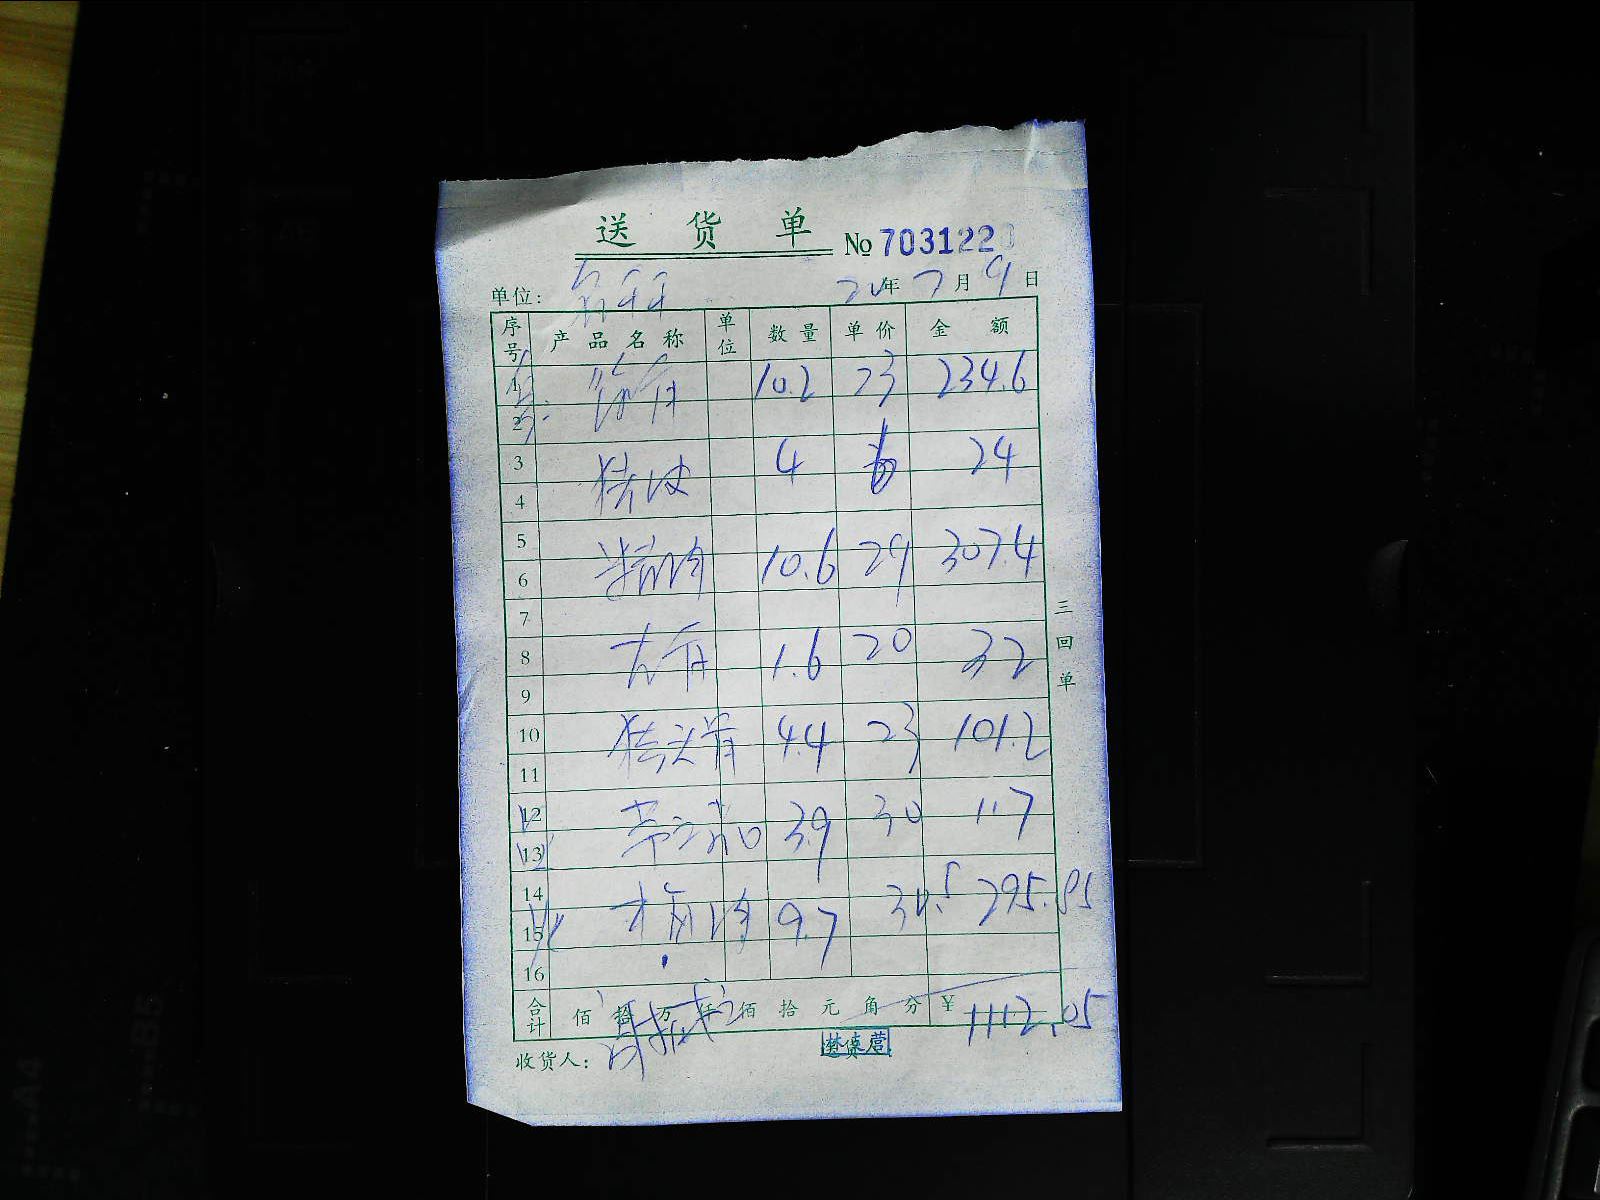 送货单 № 7031220
单位： 年7月9日
序号 产品名称 单位 数量 单价 金额
1 10.2 23 234.6
2
3 猪皮 4 6 24
4
5
6 精肉 10.6 29 307.4
7
8 大骨 1.6 20 32
9
10 猪头骨 4.4 23 101.2
11
12 3.9 30 117
13
14
15 肉 9.7 30.5 295.85
16
合计 佰 拾 万 仟 佰 拾 元 角 分 ¥ 1112.05
收货人：
三回单